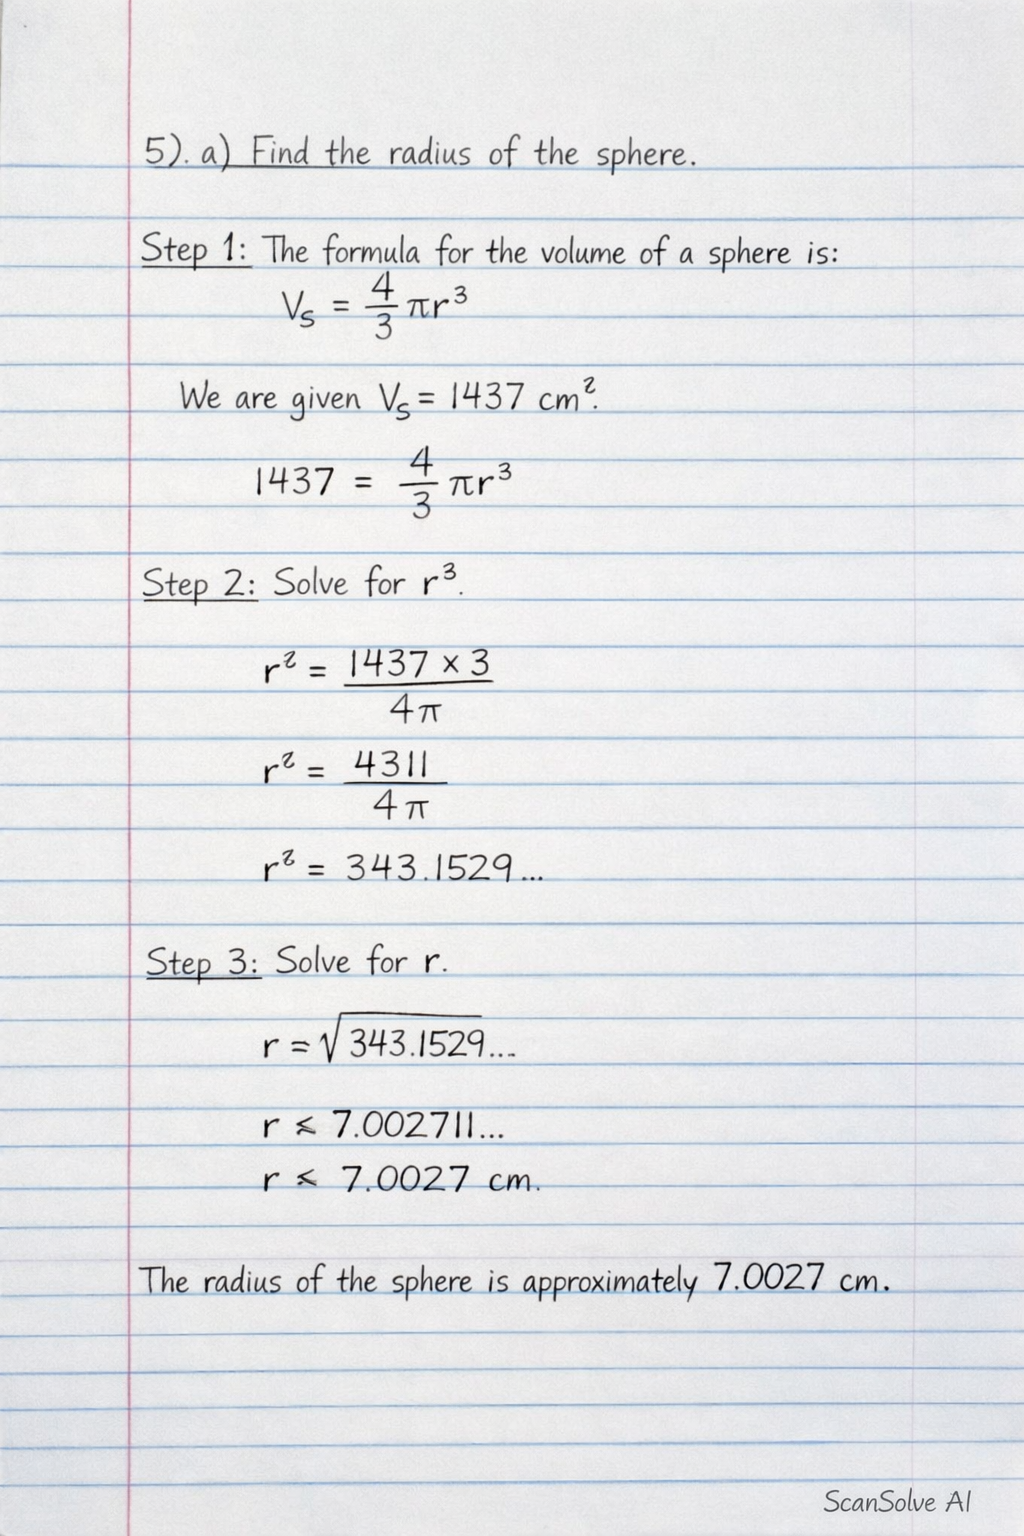 5). a) Find the radius of the sphere.
Step 1: The formula for the volume of a sphere is:
Vₛ = 4/3 πr³
We are given Vₛ = 1437 cm².
1437 = 4/3 πr³
Step 2: Solve for r³.
r² = 1437 × 3 / 4π
r² = 4311 / 4π
r² = 343.1529...
Step 3: Solve for r.
r = √343.1529...
r ⩽ 7.002711...
r ⩽ 7.0027 cm.
The radius of the sphere is approximately 7.0027 cm.
ScanSolve AI